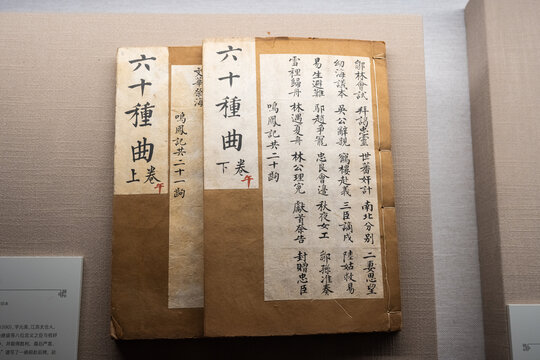 六十種曲
上卷
午
文華祭海
鳴鳳記共二十一齣
六十種曲
下卷
午
鄒林會試 拜謁忠靈 世蕃奸計 南北分別 二妻思望
幼海議本 吳公辭親 鶴樓赴義 三臣謫戍 陸姑救易
易生避難 鄢趙爭寵 忠良會邊 秋夜女工 鄒孫准奏
雪裡歸舟 林遇夏舟 林公理冤 獻首祭告 封贈忠臣
鳴鳳記共二十齣